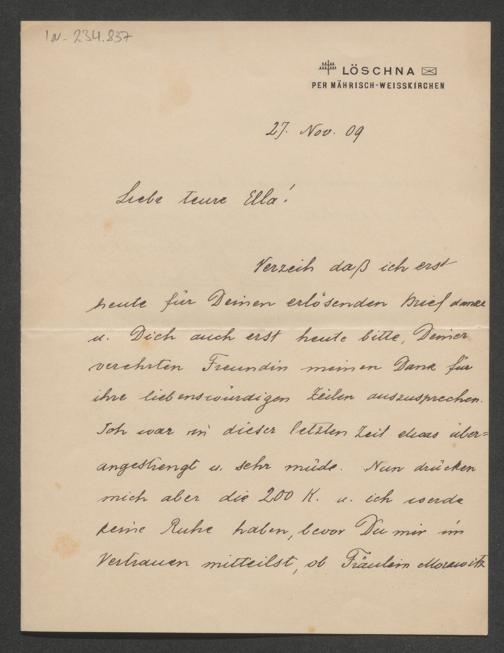 IN-234.837
LÖSCHNA
PER MÄHRISCH-WEISSKIRCHEN
27. Nov. 09
Liebe teure Ella!
Verzeih daß ich erst
heute für Deinen erlösenden Brief danke
u. Dich auch erst heute bitte, Deiner
verehrten Freundin meinen Dank für
ihre liebenswürdigen Zeilen auszusprechen.
Ich war in dieser letzten Zeit etwas über=
angestrengt u. sehr müde. Nun drücken
mich aber die 200 K. u. ich werde
keine Ruhe haben, bevor Du mir im
Vertrauen mitteilst, ob Fräulein Morawitz